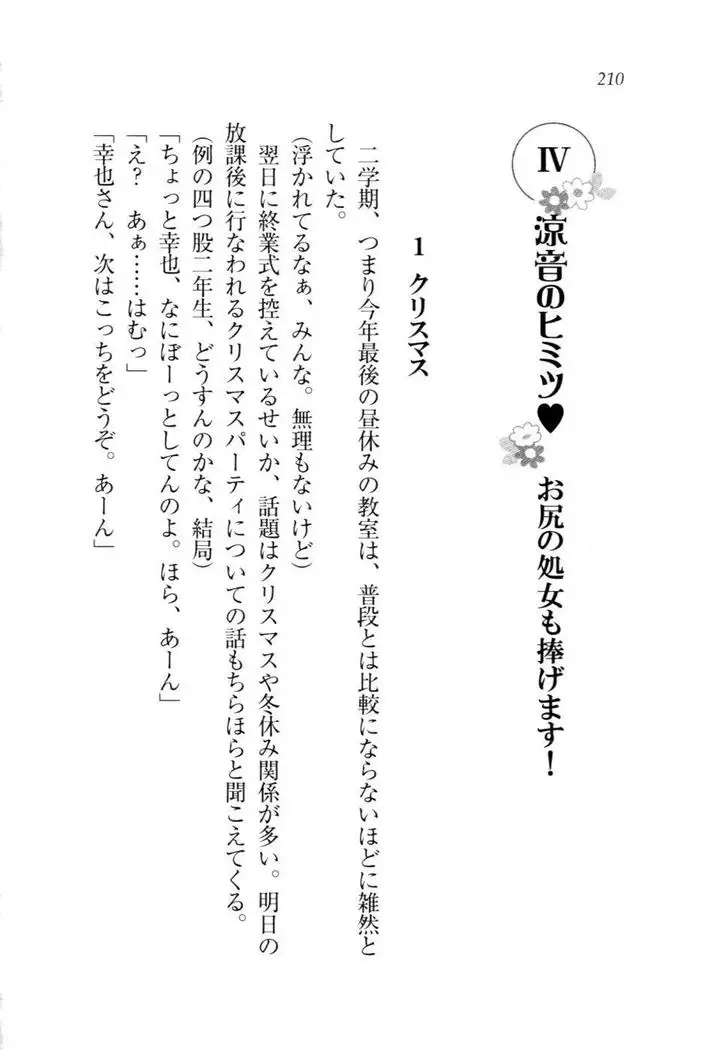 210
Ⅳ 涼音のヒミツ♥
1 クリスマス
二学期、つまり今年最後の昼休みの教室は、普段とは比較にならないほどに雑然と
していた。
(浮かれてるなぁ、みんな。無理もないけど)
翌日に終業式を控えているせいか、話題はクリスマスや冬休み関係が多い。明日の
放課後に行なわれるクリスマスパーティについての話もちらほらと聞こえてくる。
(例の四つ股二年生、どうすんのかな、結局)
「ちょっと幸也、なにぼーっとしてんのよ。ほら、あーん」
「え? あぁ……はむっ」
「幸也さん、次はこっちをどうぞ。あーん」